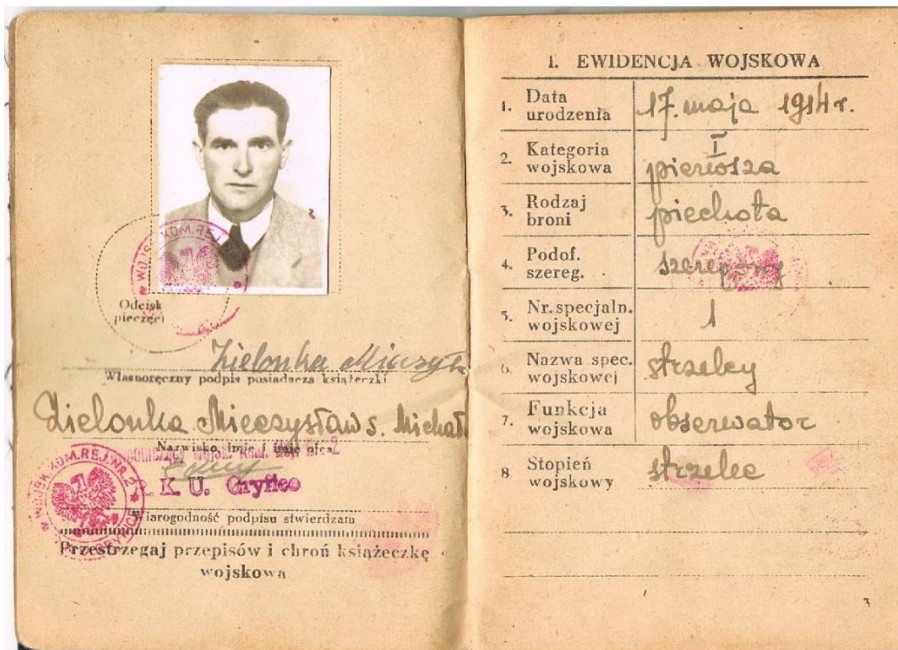 WOJSK.KOM.REJ.
Odcisk
pieczęci
Zielonka Mieczysł
Własnoręczny podpis posiadacza książeczki
Zielonka Mieczysław s. Michał
Nazwisko, imię i imię ojca
R.K.U. Gryfice
Wiarogodność podpisu stwierdzam
WOJSK.KOM.REJ.NR.2
Przestrzegaj przepisów i chroń książeczkę
wojskową
I. EWIDENCJA WOJSKOWA
1. Data urodzenia 17. maja 1914 r.
2. Kategoria wojskowa I pierwsza
3. Rodzaj broni piechota
4. Podof. szereg. szeregowy
5. Nr. specjaln. wojskowej 1
6. Nazwa spec. wojskowej strzelcy
7. Funkcja wojskowa obserwator
8 Stopień wojskowy strzelec
3